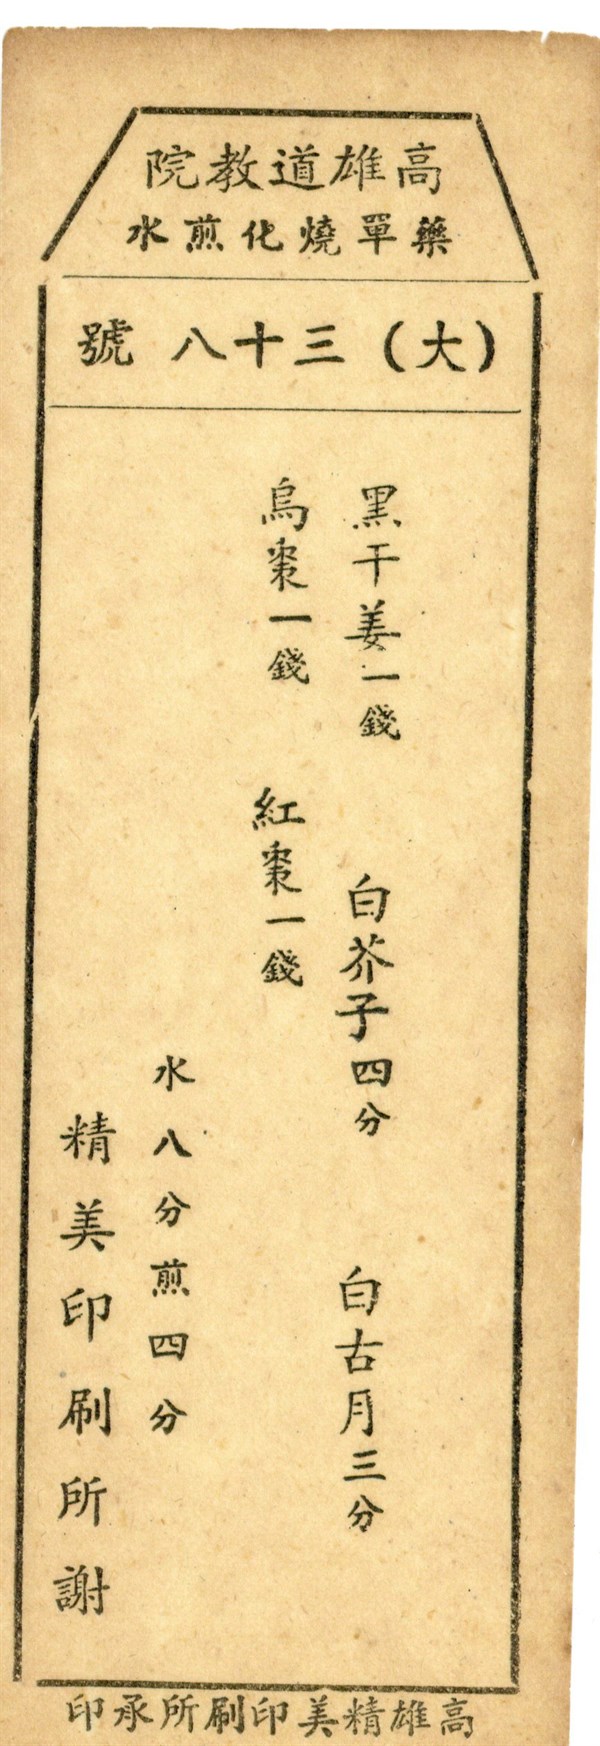 高雄道教院
藥單燒化煎水
（大）三十八號
黑干姜一錢　白芥子四分　白古月三分
烏棗一錢　紅棗一錢
水八分煎四分
精美印刷所謝
高雄精美印刷所承印